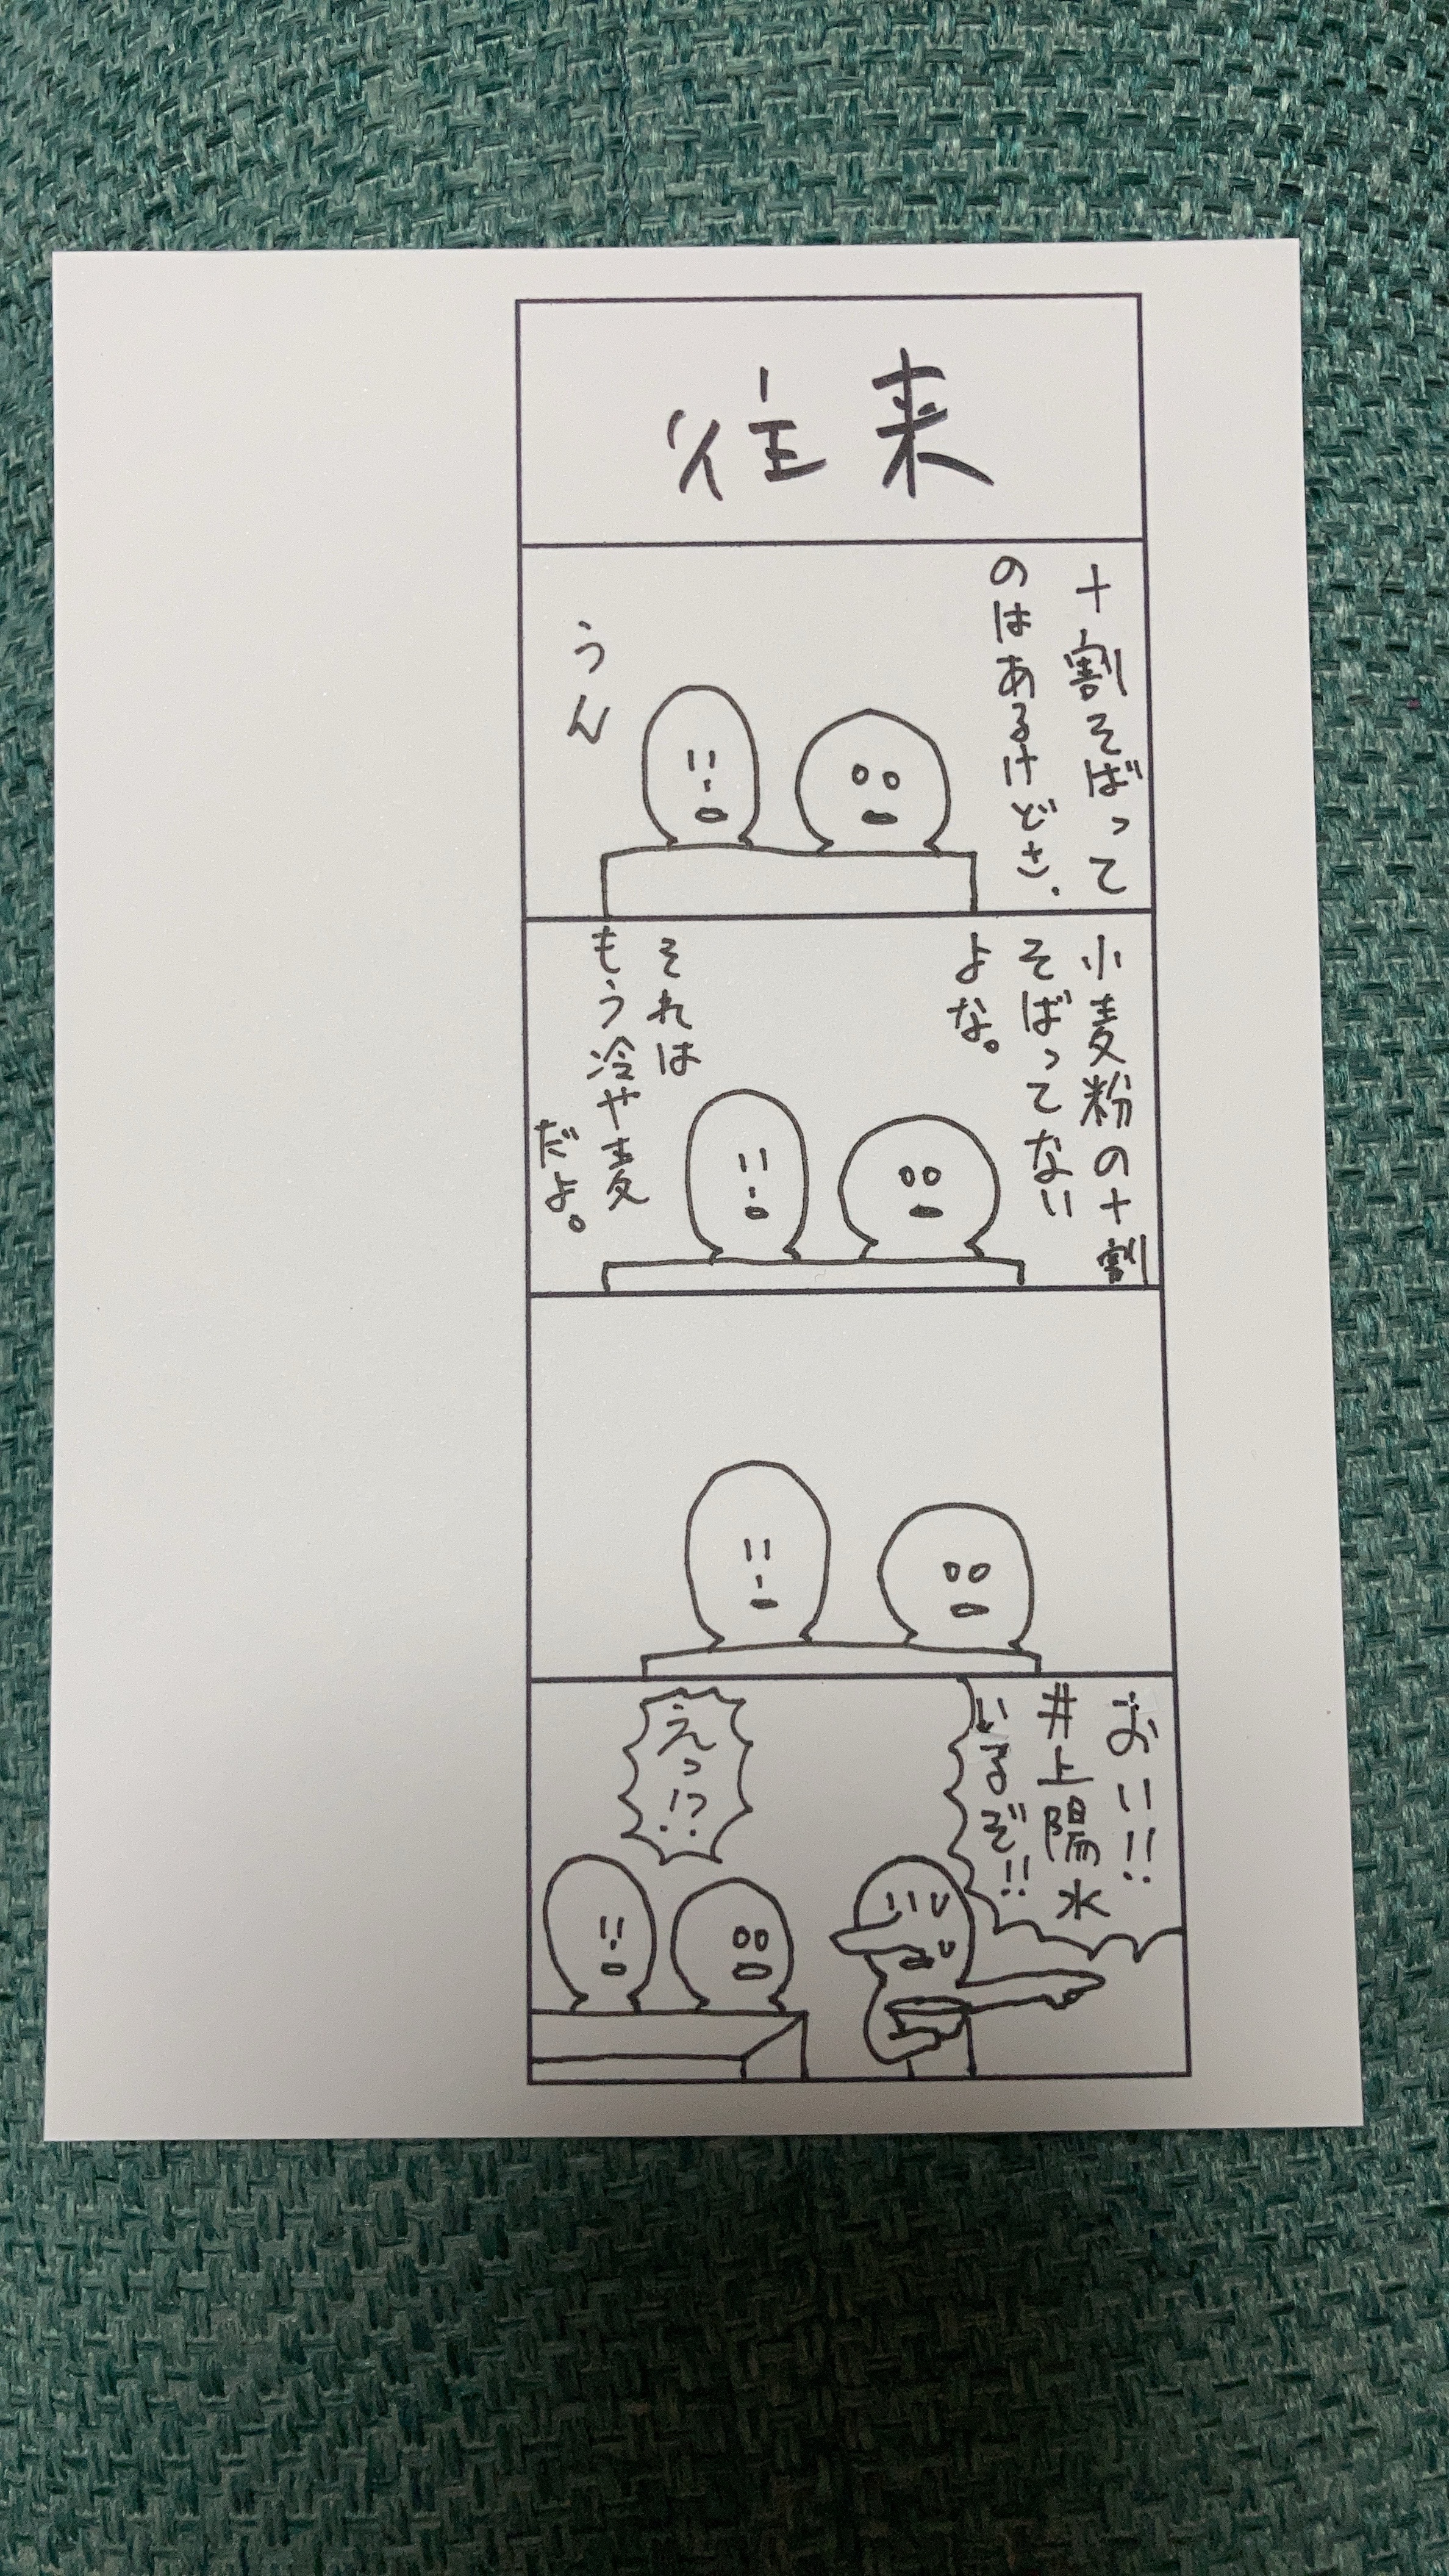 往来
十割そばって
のはあるけどさ、
うん
小麦粉の十割
そばってない
よな。
それは
もう冷や麦
だよ。
おい!!
井上陽水
いるぞ!!
えっ!?